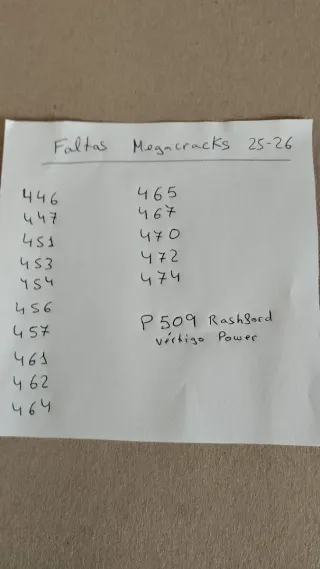 Faltas Megacracks 25-26
446
447
451
453
454
456
457
461
462
464
465
467
470
472
474
P509 Rashford
vértigo Power